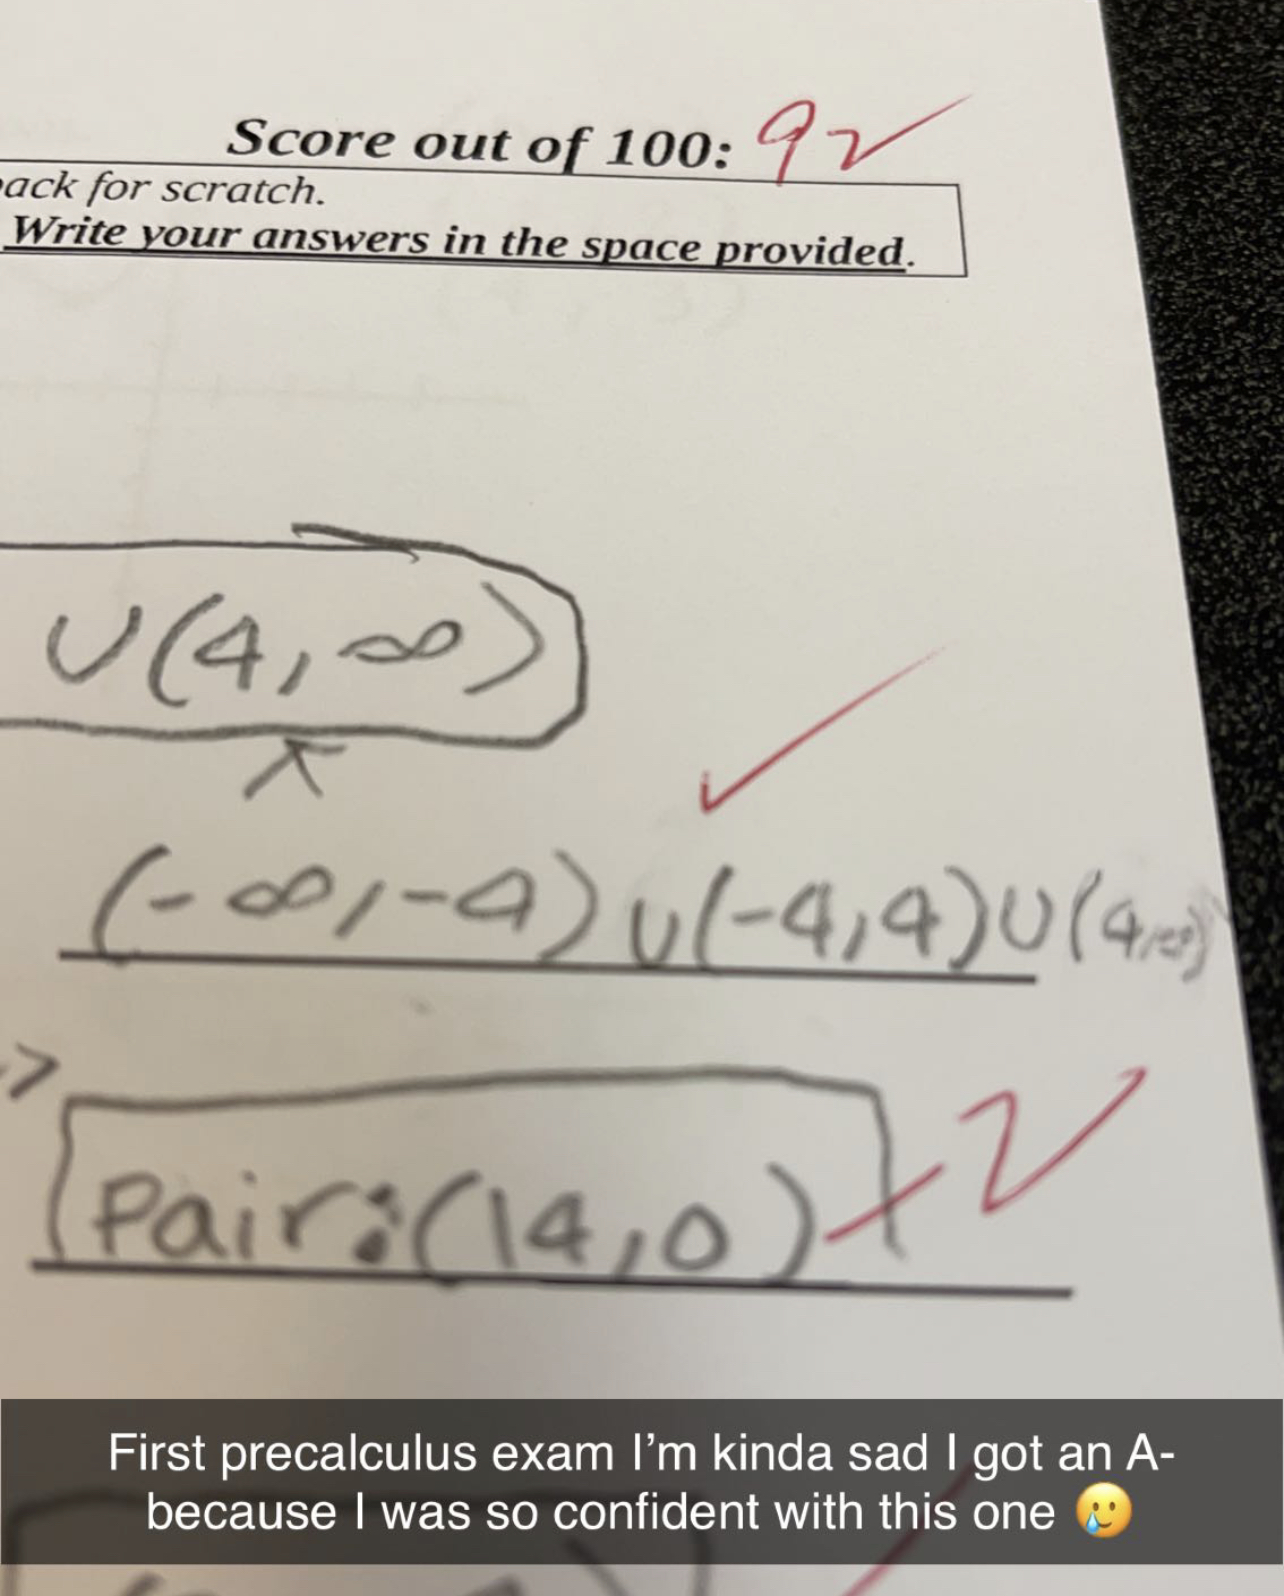 Score out of 100: 92
back for scratch.
Write your answers in the space provided.
U(4,∞)
(-∞,-4)U(-4,4)U(4,∞)
->
Pair:(14,0) -2
First precalculus exam I’m kinda sad I got an A-
because I was so confident with this one 🥲